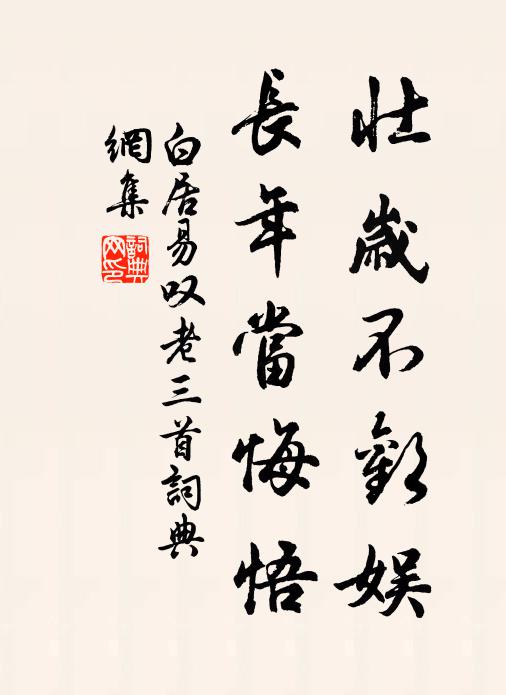 壯歲不歡娛
長年當悔悟
白居易叹老三首詞典
網集
詞典
网印